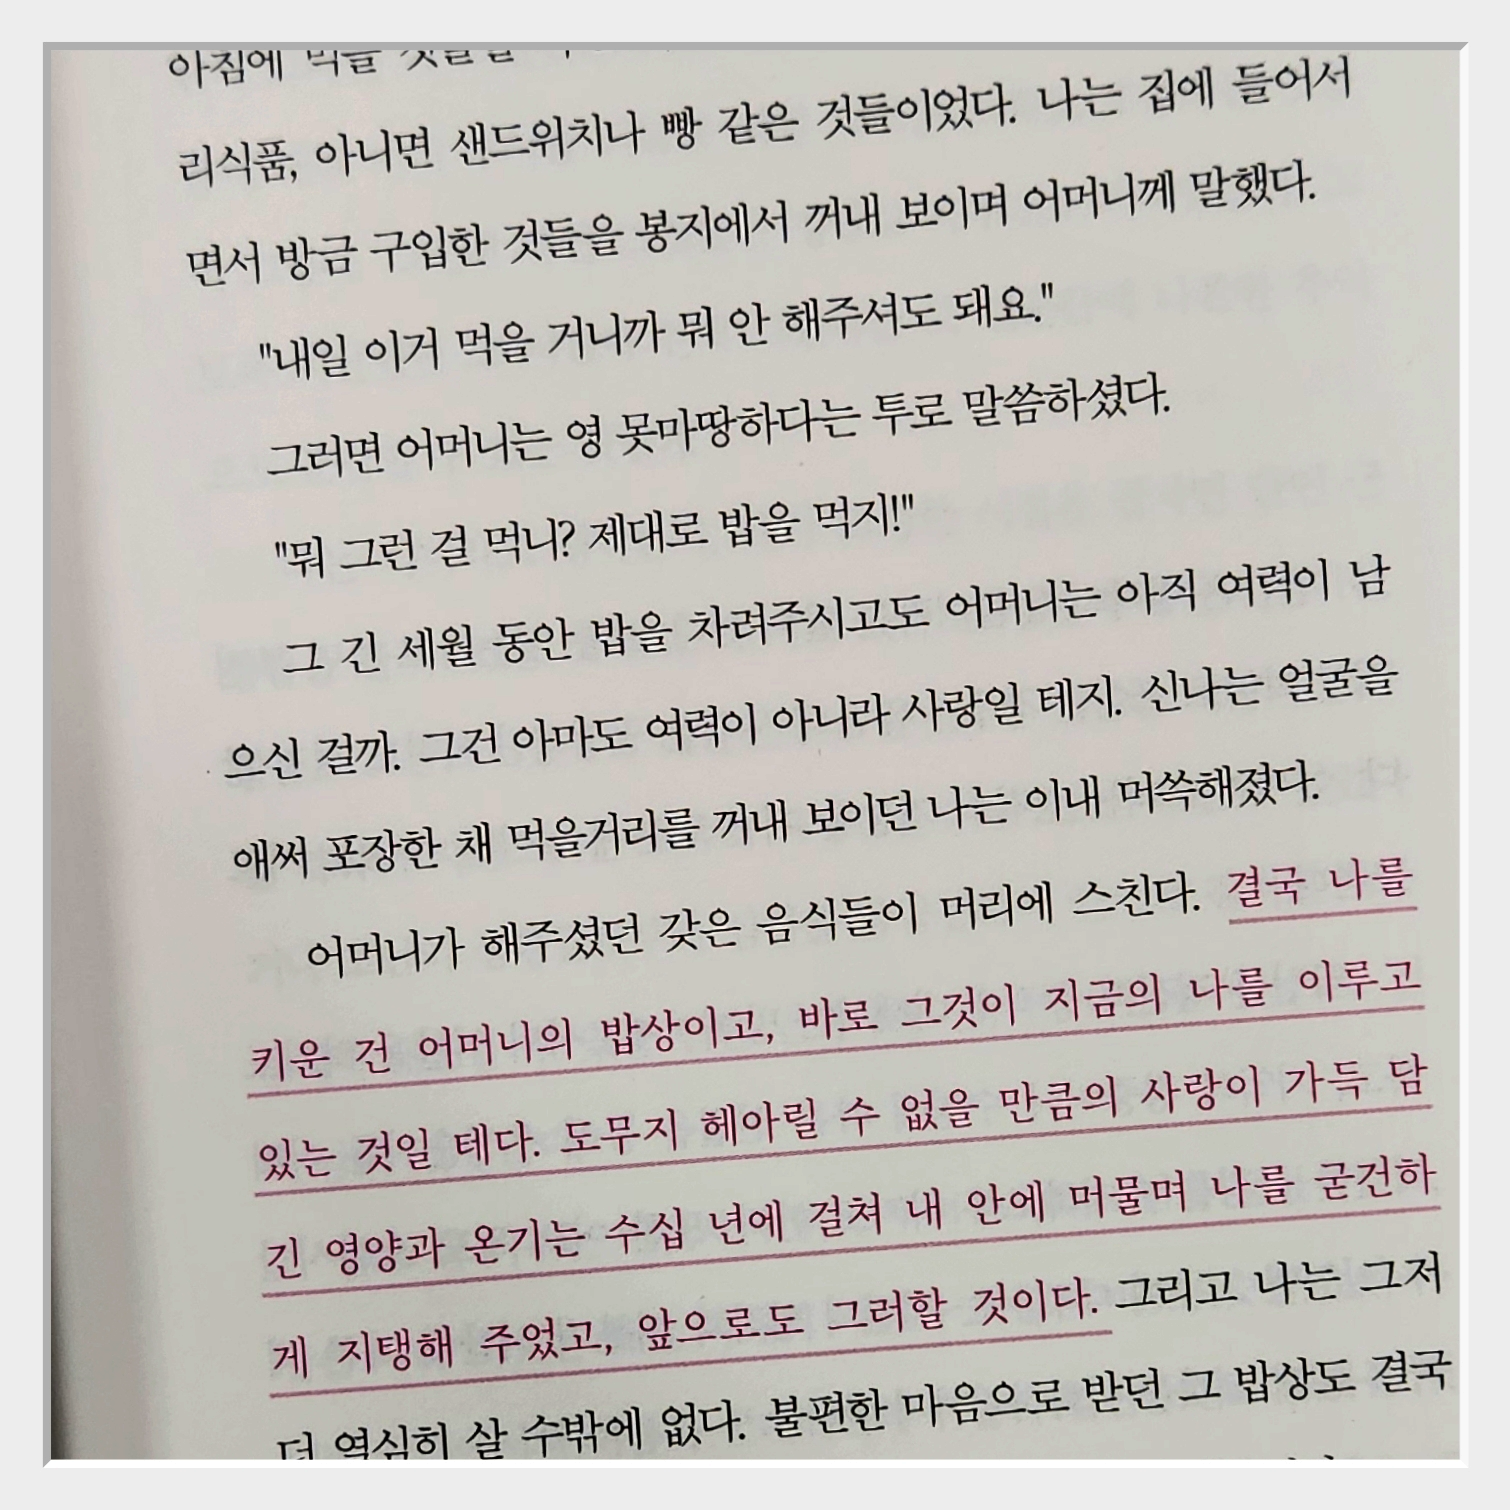 아침에 먹을 것들을
리식품, 아니면 샌드위치나 빵 같은 것들이었다. 나는 집에 들어서
면서 방금 구입한 것들을 봉지에서 꺼내 보이며 어머니께 말했다.
"내일 이거 먹을 거니까 뭐 안 해주셔도 돼요."
그러면 어머니는 영 못마땅하다는 투로 말씀하셨다.
"뭐 그런 걸 먹니? 제대로 밥을 먹지!"
그 긴 세월 동안 밥을 차려주시고도 어머니는 아직 여력이 남
으신 걸까. 그건 아마도 여력이 아니라 사랑일 테지. 신나는 얼굴을
애써 포장한 채 먹을거리를 꺼내 보이던 나는 이내 머쓱해졌다.
어머니가 해주셨던 갖은 음식들이 머리에 스친다. 결국 나를
키운 건 어머니의 밥상이고, 바로 그것이 지금의 나를 이루고
있는 것일 테다. 도무지 헤아릴 수 없을 만큼의 사랑이 가득 담
긴 영양과 온기는 수십 년에 걸쳐 내 안에 머물며 나를 굳건하
게 지탱해 주었고, 앞으로도 그러할 것이다. 그리고 나는 그저
더 열심히 살 수밖에 없다. 불편한 마음으로 받던 그 밥상도 결국